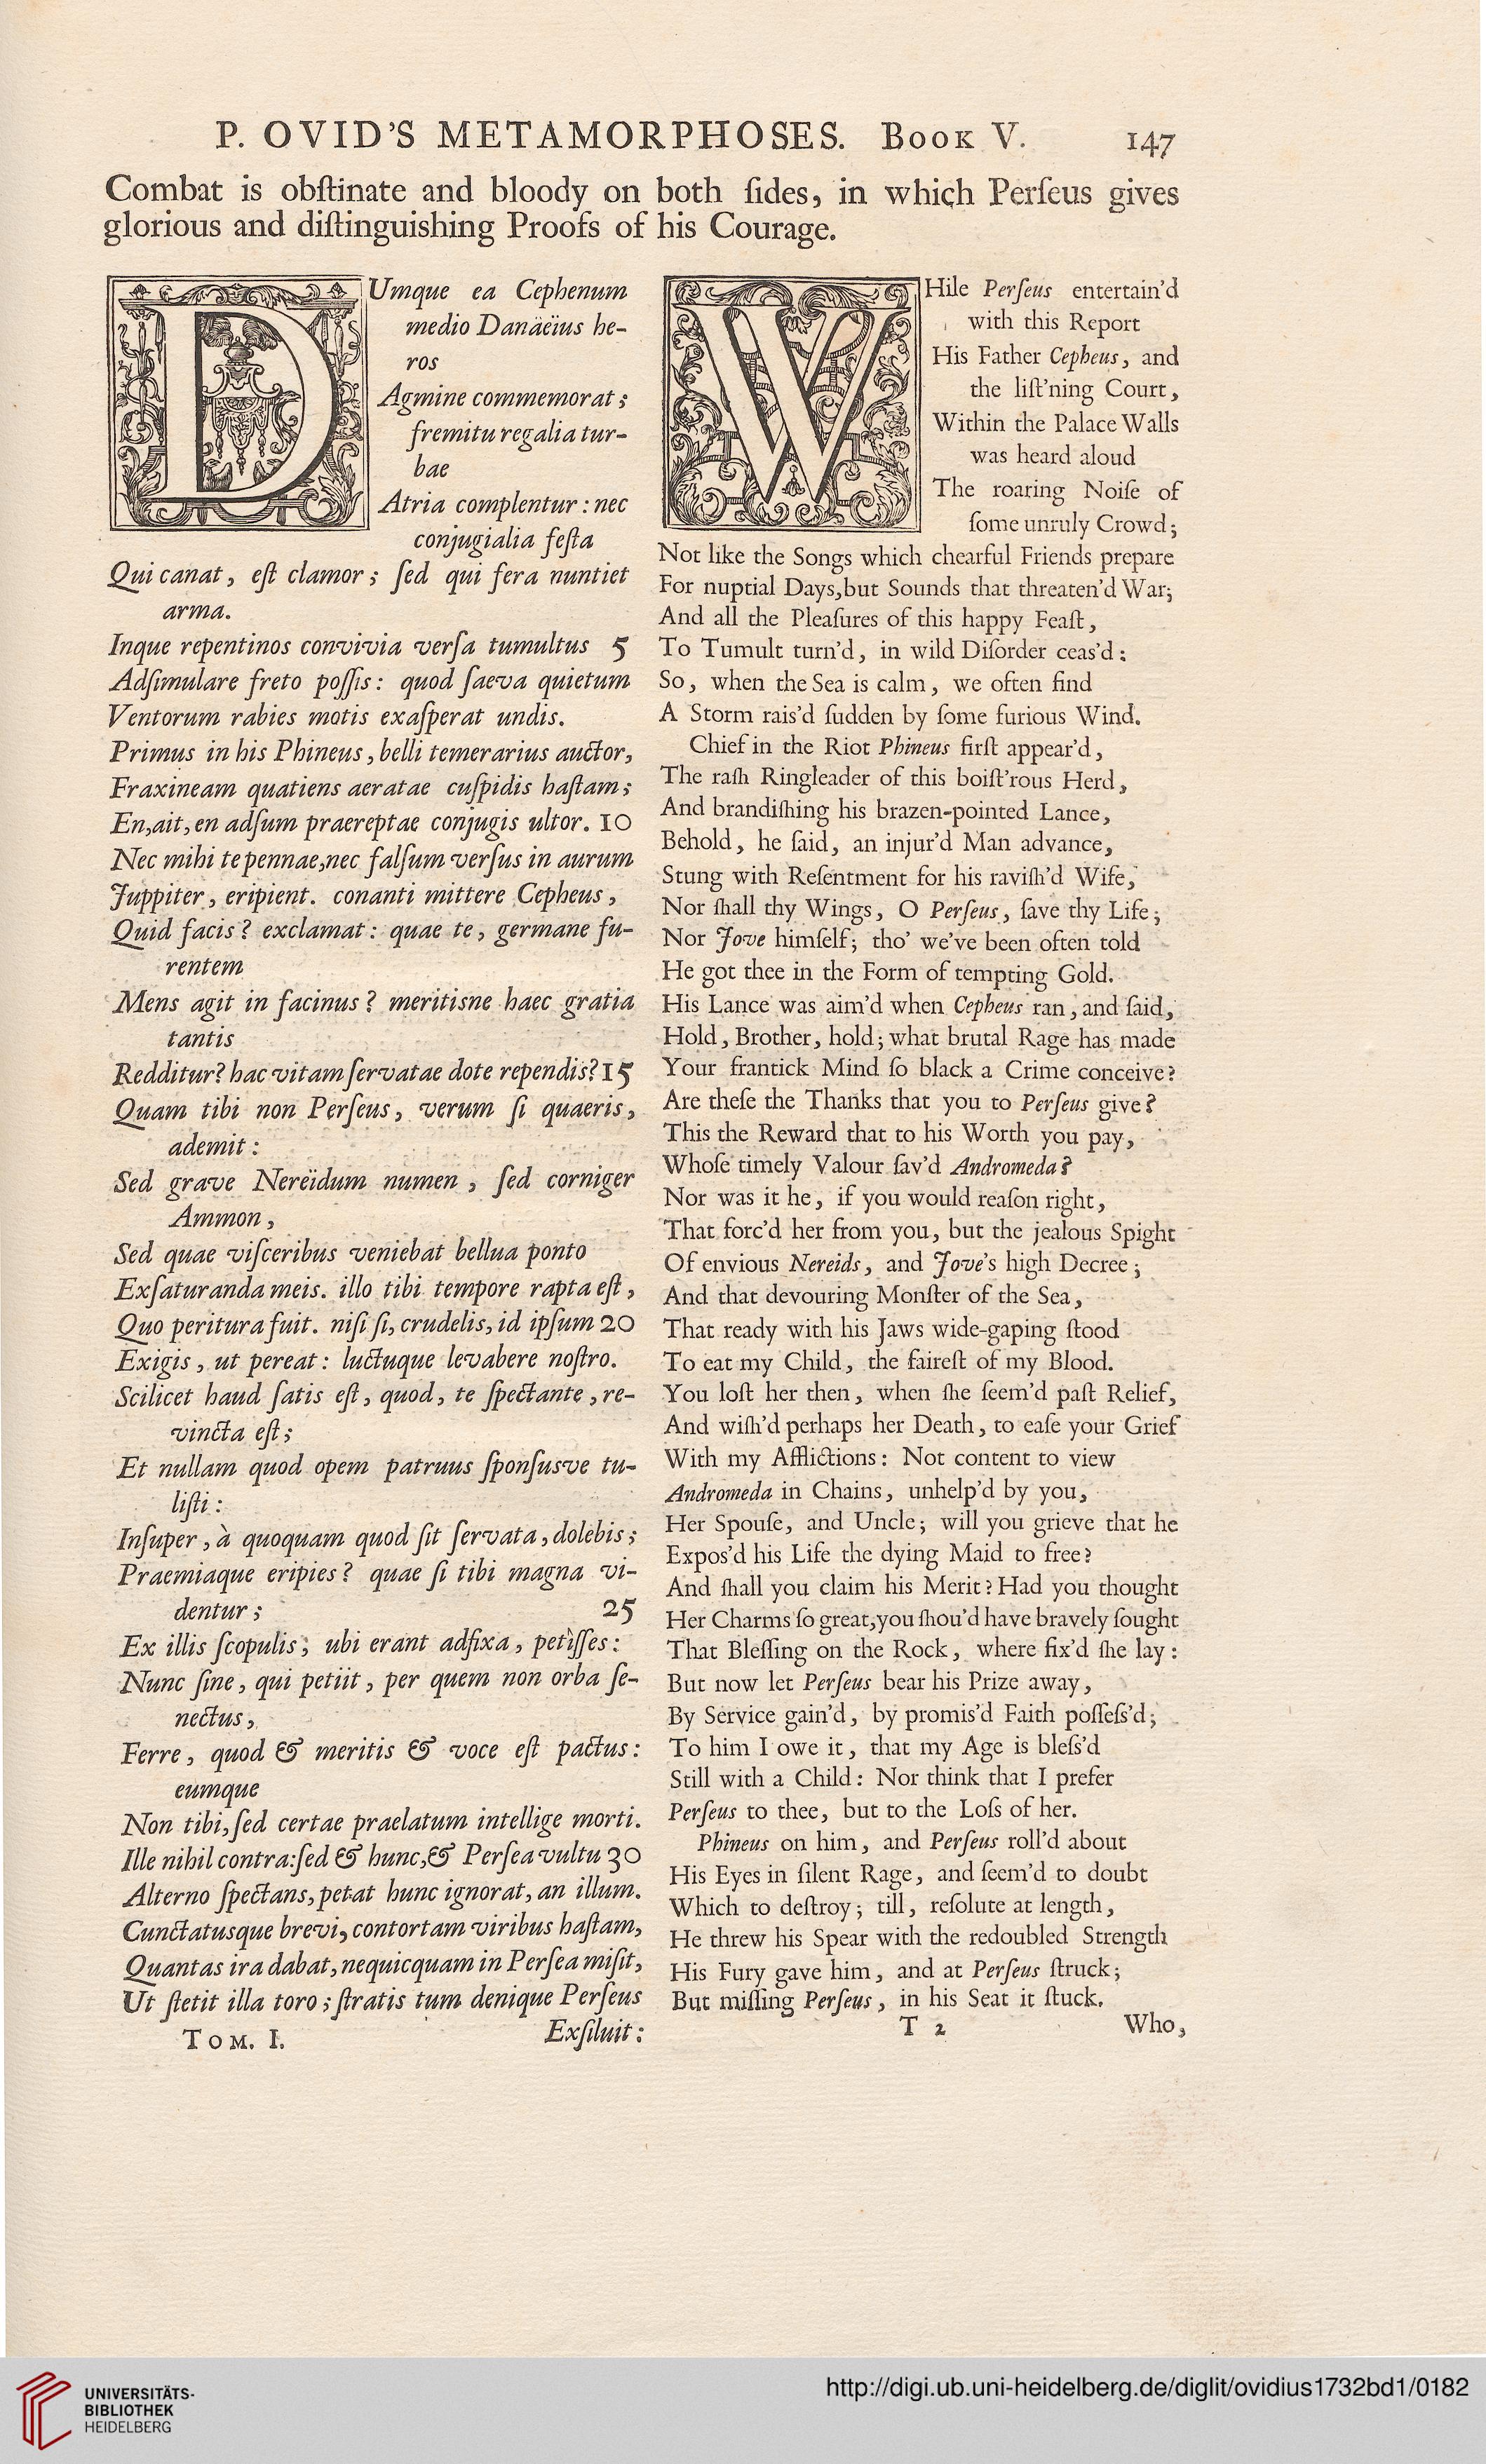 P. OVID'S METAMORPHOSES. BOOK V. 147
Combat is obſtinate and bloody on both ſides, in which Perſeus gives
glorious and diſtinguishing Proofs of his Courage.
DUmque ea Cephenum
medio Danäeïus he-
ros
Agmine commemorat;
fremitu regalia tur-
bae
Atria complentur: nec
conjugialia feſta
Qui canat, eſt clamor; ſed qui fera nuntiet
arma.
Inque repentinos convivia verſa tumultus 5
Adſimulare freto poſſis: quod ſaeva quietum
Ventorum rabies motis exaſperat undis.
Primus in his Phineus, belli temerarius auctor,
Fraxineam quatiens aeratae cuſpidis haſtam;
En, ait, en adſum praereptae conjugis ultor. 10
Nec mihi te pennae, nec falſum verſus in aurum
Juppiter, eripient. conanti mittere Cepheus,
Quid facis? exclamat: quae te, germane fu-
rentem
Mens agit in facinus? meritisne haec gratia
tantis
Redditur? hac vitam ſervatae dote rependis? 15
Quam tibi non Perſeus, verum ſi quaeris,
ademit:
Sed grave Nereïdum numen, ſed corniger
Ammon,
Sed quae viſceribus veniebat bellua ponto
Exſaturanda meis. illo tibi tempore rapta eſt,
Quo peritura fuit. niſi ſi, crudelis, id ipſum 20
Exigis, ut pereat: luctuque levabere noſtro.
Scilicet haud ſatis eſt, quod, te ſpectante, re-
vincta eſt;
Et nullam quod opem patruus ſponſusve tu-
liſti:
Inſuper, à quoquam quod ſit ſervata, dolebis;
Praemiaque eripies? quae ſi tibi magna vi-
dentur; 25
Ex illis ſcopulis, ubi erant adfixa, petìſſes:
Nunc ſine, qui petiit, per quem non orba ſe-
nectus,
Ferre, quod & meritis & voce eſt pactus:
eumque
Non tibi, ſed certae praelatum intellige morti.
Ille nihil contra: ſed & hunc, & Perſea vultu 30
Alterno ſpectans, petat hunc ignorat, an illum.
Cunctatusque brevi, contortam viribus haſtam,
Quantas ira dabat, nequicquam in Perſea miſit,
Ut ſtetit illa toro; ſtratis tum denique Perſeus
TOM. I. Exſiluit:
WHile Perſeus entertain'd
with this Report
His Father Cepheus, and
the liſt'ning Court,
Within the Palace Walls
was heard aloud
The roaring Noiſe of
ſome unruly Crowd;
Not like the Songs which chearful Friends prepare
For nuptial Days, but Sounds that threaten'd War;
And all the Pleaſures of this happy Feaſt,
To Tumult turn'd, in wild Diſorder ceas'd:
So, when the Sea is calm, we often find
A Storm rais'd ſudden by ſome furious Wind.
Chief in the Riot Phineus firſt appear'd,
The raſh Ringleader of this boiſt'rous Herd,
And brandiſhing his brazen-pointed Lance,
Behold, he ſaid, an injur'd Man advance,
Stung with Reſentment for his raviſh'd Wife,
Nor ſhall thy Wings, O Perſeus, ſave thy Life;
Nor Jove himſelf; tho' we've been often told
He got thee in the Form of tempting Gold.
His Lance was aim'd when Cepheus ran, and ſaid,
Hold, Brother, hold; what brutal Rage has made
Your frantick Mind ſo black a Crime conceive?
Are theſe the Thanks that you to Perſeus give?
This the Reward that to his Worth you pay,
Whoſe timely Valour ſav'd Andromeda?
Nor was it he, if you would reaſon right,
That forc'd her from you, but the jealous Spight
Of envious Nereids, and Jove's high Decree;
And that devouring Monſter of the Sea,
That ready with his Jaws wide-gaping ſtood
To eat my Child, the faireſt of my Blood.
You loſt her then, when ſhe ſeem'd paſt Relief,
And wiſh'd perhaps her Death, to eaſe your Grief
With my Afflictions: Not content to view
Andromeda in Chains, unhelp'd by you,
Her Spouſe, and Uncle; will you grieve that he
Expos'd his Life the dying Maid to free?
And ſhall you claim his Merit? Had you thought
Her Charms ſo great, you ſhou'd have bravely ſought
That Bleſſing on the Rock, where fix'd ſhe lay:
But now let Perſeus bear his Prize away,
By Service gain'd, by promis'd Faith poſſeſs'd;
To him I owe it, that my Age is bleſs'd
Still with a Child: Nor think that I prefer
Perſeus to thee, but to the Loſs of her.
Phineus on him, and Perſeus roll'd about
His Eyes in ſilent Rage, and ſeem'd to doubt
Which to deſtroy; till, reſolute at length,
He threw his Spear with the redoubled Strength
His Fury gave him, and at Perſeus ſtruck;
But miſſing Perſeus, in his Seat it ſtuck.
T 2 Who,
UNIVERSITÄTS-
BIBLIOTHEK
HEIDELBERG
http://digi.ub.uni-heidelberg.de/diglit/ovidius1732bd1/0182